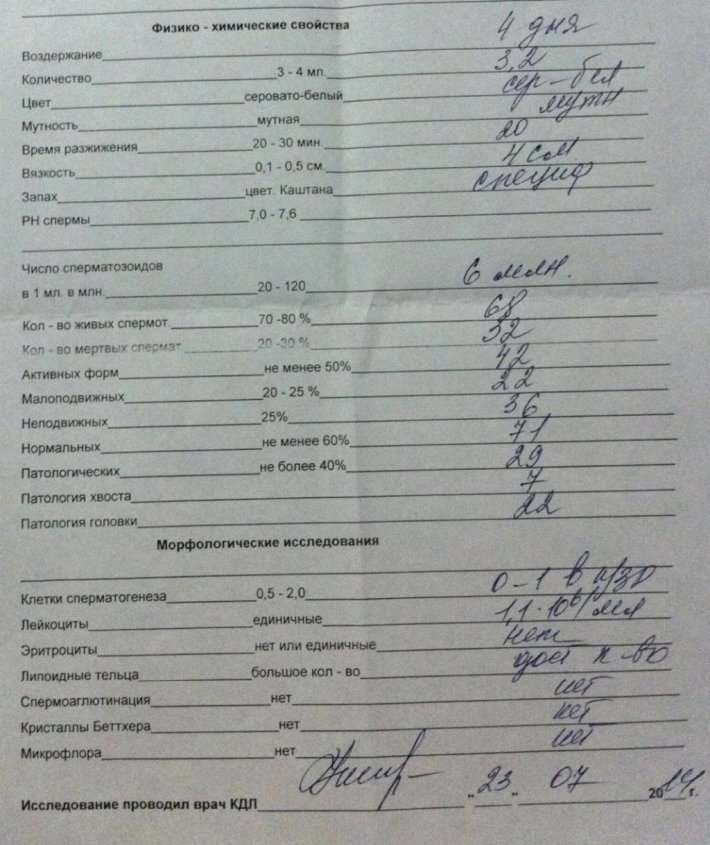 Физико - химические свойства
Воздержание 4 дня
Количество 3 - 4 мл. 3,2
Цвет серовато-белый сер-бел
Мутность мутная мутн
Время разжижения 20 - 30 мин. 20
Вязкость 0,1 - 0,5 см. 4 см
Запах цвет. Каштана специф
РН спермы 7,0 - 7,6
Число сперматозоидов
в 1 мл. в млн. 20 - 120 6 млн.
Кол - во живых спермот. 70 -80 % 68
Кол - во мертвых спермат 20 -30 % 32
Активных форм не менее 50% 42
Малоподвижных 20 - 25 % 22
Неподвижных 25% 36
Нормальных не менее 60% 71
Патологических не более 40% 29
Патология хвоста 7
Патология головки 22
Морфологические исследования
Клетки сперматогенеза 0,5 - 2,0 0-1 в п/зр
Лейкоциты единичные 1,1·10⁶/мл
Эритроциты нет или единичные нет
Липоидные тельца большое кол - во дост к-во
Спермоаглютинация нет нет
Кристаллы Беттхера нет нет
Микрофлора нет нет
Исследование проводил врач КДЛ "23" 07 2014 г.